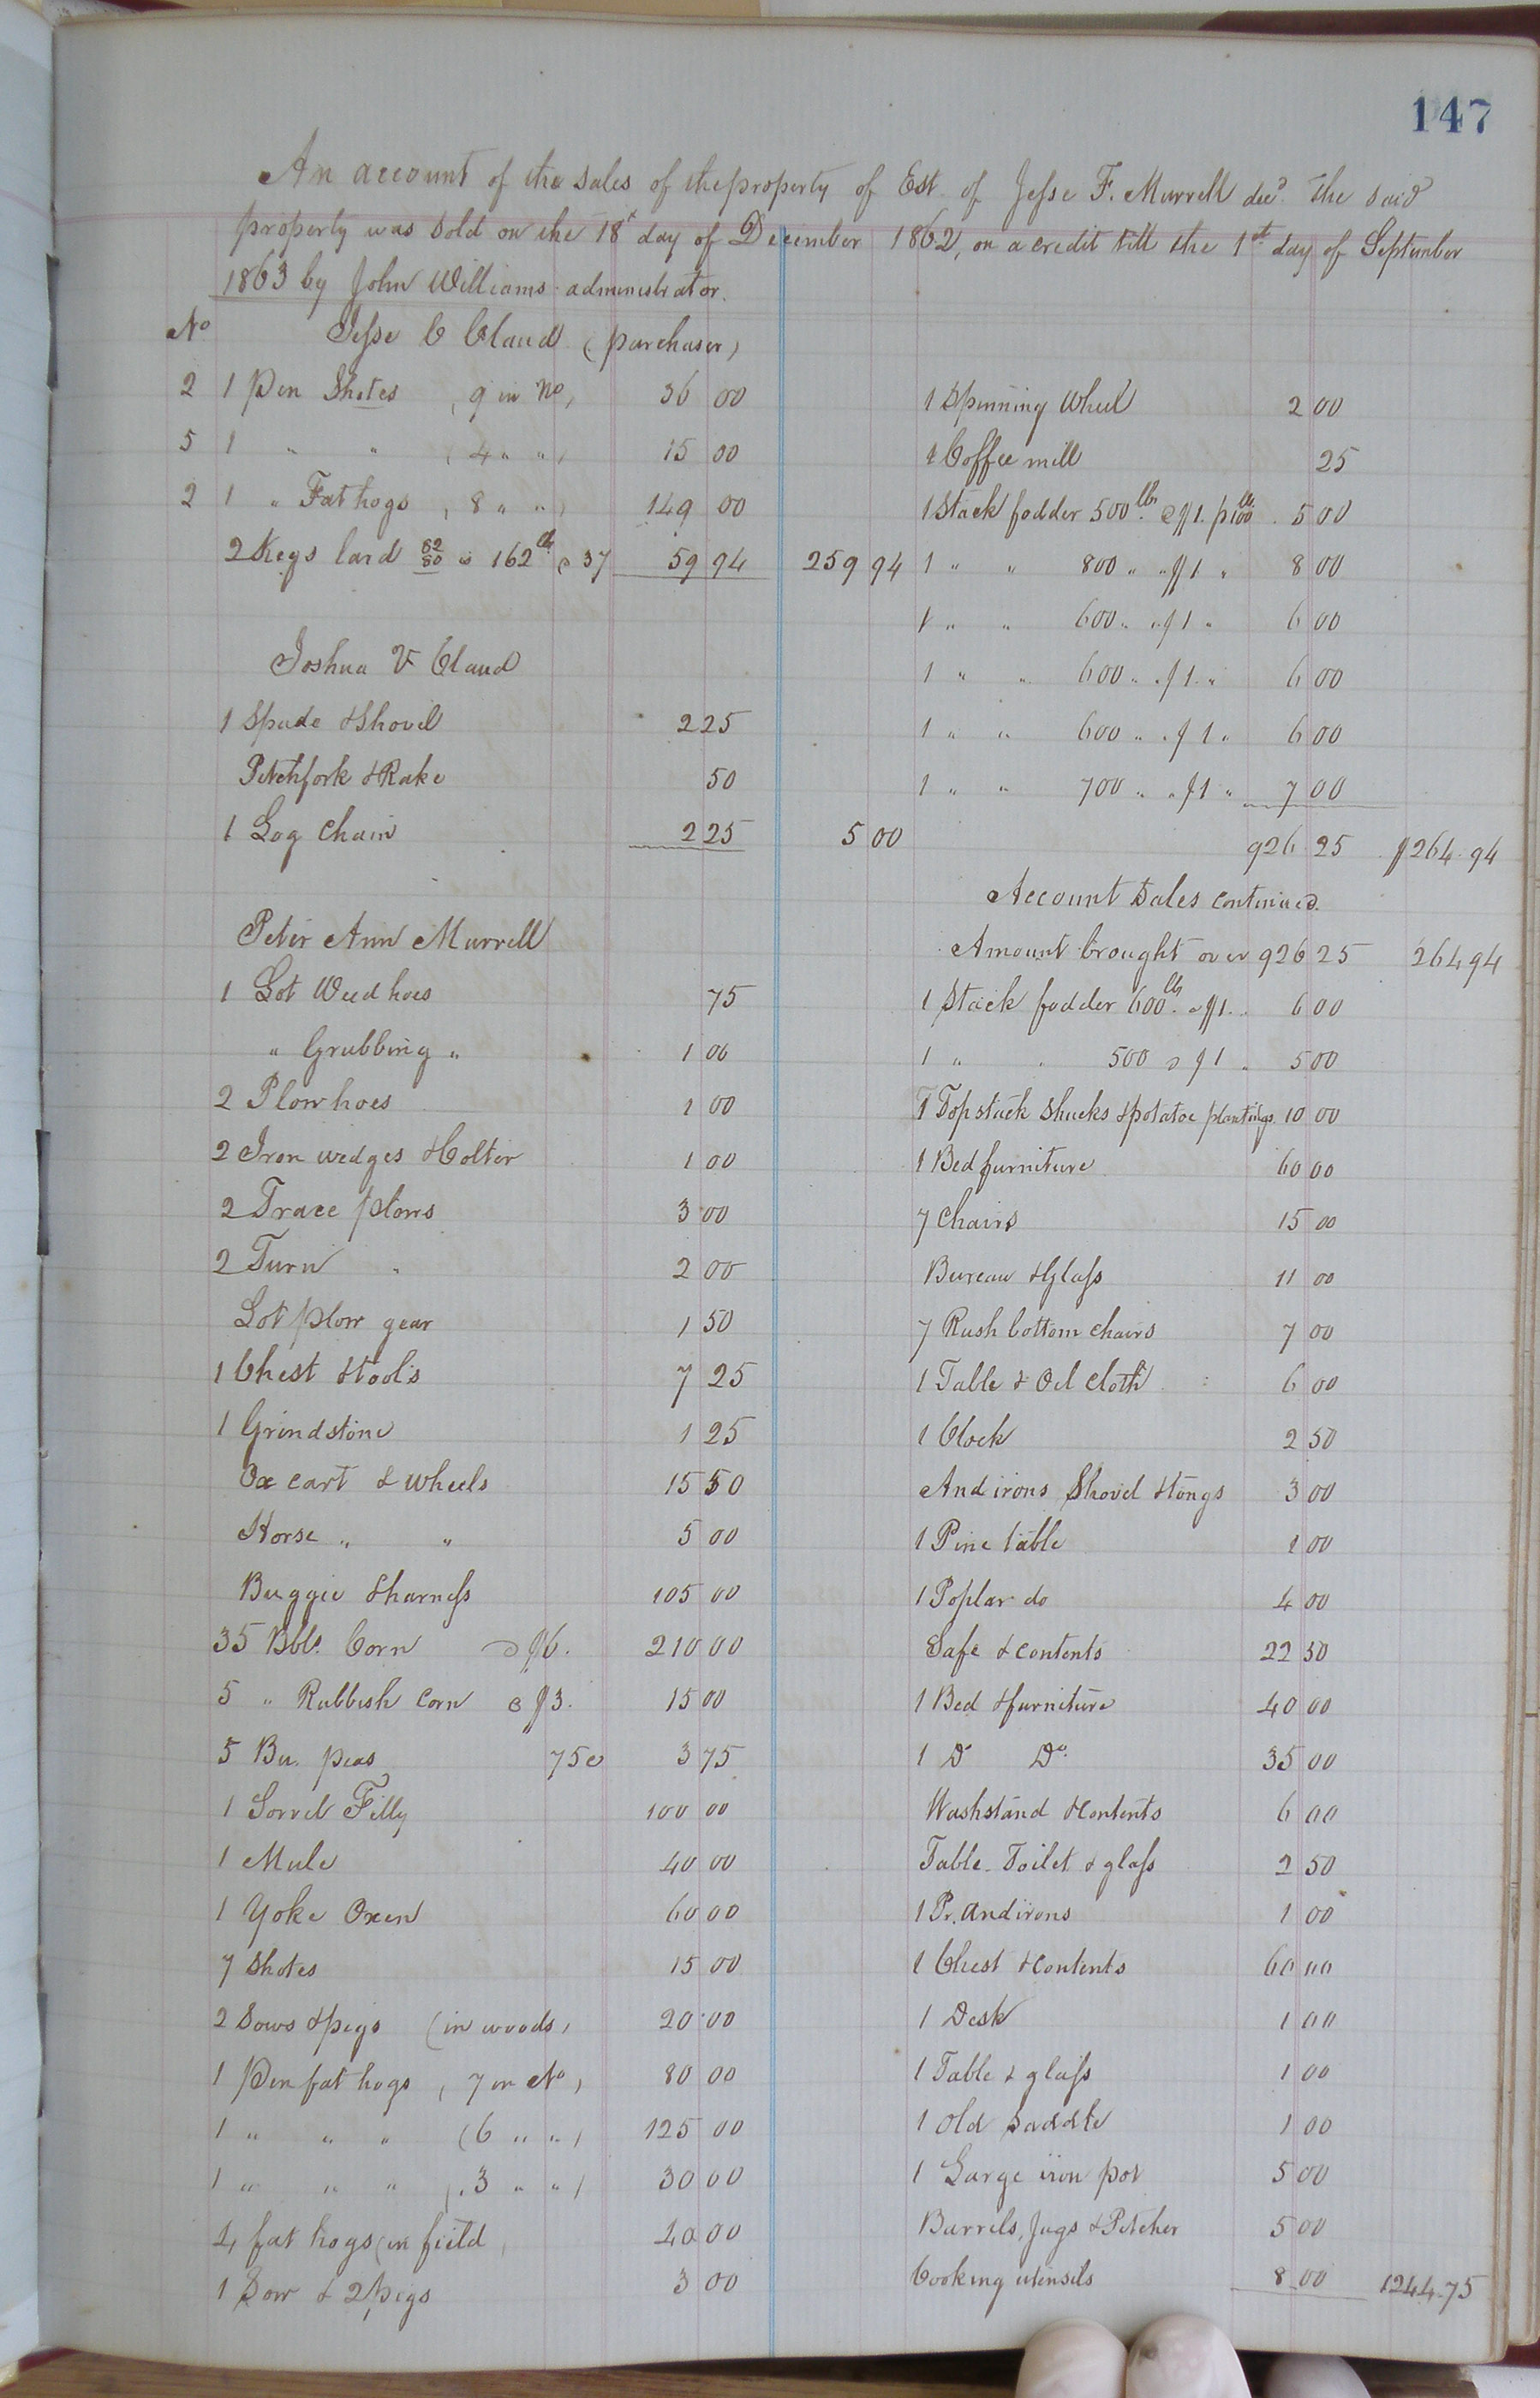 147
An account of the sales of the property of Est. of Jesse F. Murrell decd. The said
property was sold on the 18th day of December 1862, on a credit till the 1st day of September
1863 by John Williams administrator.
No Jesse C Claud (purchaser)
2 1 Pen Shotes (9 in No) 36 00
5 1 " " (4 " ") 15 00
2 1 " Fat hogs (8 " ") 149 00
2 Kegs lard 82/80 is 162 lbs @ 37 59 94 259 94
Joshua V Claud
1 Spade & Shovel 2 25
Pitchfork & Rake 50
1 Log Chain 2 25 5 00
Peter Ann Murrell
1 Lot Weed hoes 75
" Grubbing " 1 00
2 Plow hoes 1 00
2 Iron wedges & Colter 1 00
2 Trace plows 3 00
2 Turn " 2 00
Lot plow gear 1 50
1 Chest & tools 7 25
1 Grindstone 1 25
Ox cart & wheels 15 50
Horse " " 5 00
Buggie & harness 105 00
35 Bbls. Corn @ $6. 210 00
5 " Rubbish Corn @ $3. 15 00
5 Bu. peas 75c 3 75
1 Sorrel Filly 100 00
1 Mule 40 00
1 Yoke Oxen 60 00
7 Shotes 15 00
2 Sows & pigs (in woods) 20 00
1 Pen fat hogs (7 in No) 80 00
1 " " " (6 " ") 125 00
1 " " " (3 " ") 30 00
4 fat hogs (in field) 40 00
1 Sow & 2 pigs 3 00
1 Spinning Wheel 2 00
1 Coffee mill 25
1 Stack fodder 500 lbs. @ $1. p 100 lbs. 5 00
1 " " 800 " " $1 " 8 00
1 " " 600 " " $1 " 6 00
1 " " 600 " " $1 " 6 00
1 " " 600 " " $1 " 6 00
1 " " 700 " " $1 " 7 00
926 25 $264.94
Account Sales continued.
Amount brought over 926 25 264 94
1 Stack fodder 600 lbs. @ $1. 6 00
1 " " 500 @ $1 " 5 00
1 Top stack Shucks & potatoe plantings. 10 00
1 Bed furniture 60 00
7 Chairs 15 00
Bureau & Glass 11 00
7 Rush bottom chairs 7 00
1 Table & Oil cloth 6 00
1 Clock 2 50
And irons Shovel & tongs 3 00
1 Pine table 1 00
1 Poplar do 4 00
Safe & contents 22 50
1 Bed & furniture 40 00
1 Do Do. 35 00
Washstand & contents 6 00
Table Toilet & glass 2 50
1 Pr. andirons 1 00
1 Chest & contents 60 00
1 Desk 1 00
1 Table & glass 1 00
1 old saddle 1 00
1 Large iron pot 5 00
Barrels, Jugs & Pitcher 5 00
Cooking utensils 8 00 1244.75